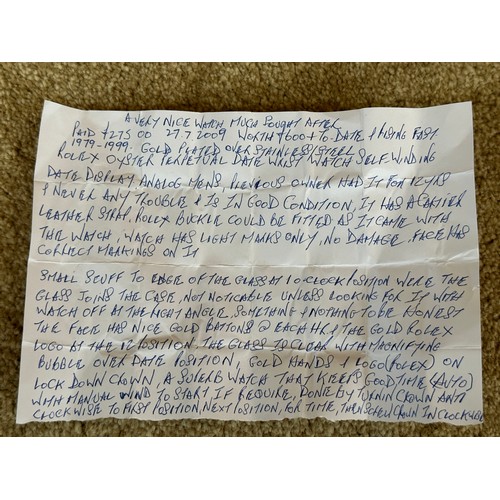 A VERY NICE WATCH MUCH SOUGHT AFTER
PAID £275 00 27.7.2009 WORTH £600+ TO-DATE & RISING FAST.
1979-1999. GOLD PLATED OVER STAINLESS/STEEL
ROLEX OYSTER PERPETUAL DATE WRIST WATCH SELF WINDING
DATE DISPLAY ANALOG MENS, PREVIOUS OWNER HAD IT FOR 12 YRS
& NEVER ANY TROUBLE & IS IN GOOD CONDITION, IT HAS A CARTIER
LEATHER STRAP, ROLEX BUCKLE COULD BE FITTED AS IT CAME WITH
THE WATCH, WATCH HAS LIGHT MARKS ONLY, NO DAMAGE, FACE HAS
CORRECT MARKINGS ON IT
SMALL SCUFF TO EDGE OF THE GLASS AT 1 O-CLOCK POSITION WERE THE
GLASS JOINS THE CASE, NOT NOTICABLE UNLESS LOOKING FOR IT WITH
WATCH OFF AT THE RIGHT ANGLE, SOMETHING & NOTHING TO BE HONEST
THE FACE HAS NICE GOLD BATTONS @ EACH HR & THE GOLD ROLEX
LOGO AT THE 12 POSITION. THE GLASS IS CLEAR WITH MAGNIFYING
BUBBLE OVER DATE POSITION, GOLD HANDS & LOGO (ROLEX) ON
LOCK DOWN CROWN, A SUPERB WATCH THAT KEEPS GOOD TIME, (AUTO)
WITH MANUAL WIND TO START IF REQUIRE, DONE BY TURNIN CROWN ANTI
CLOCKWISE TO FIRST POSITION, NEXT POSITION, FOR TIME, THEN SCREW CROWN IN CLOCKWISE